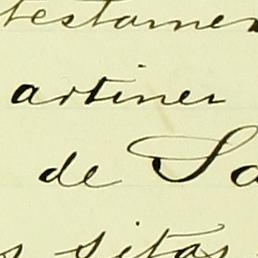 testamen
artiner
de Sa
s sitas